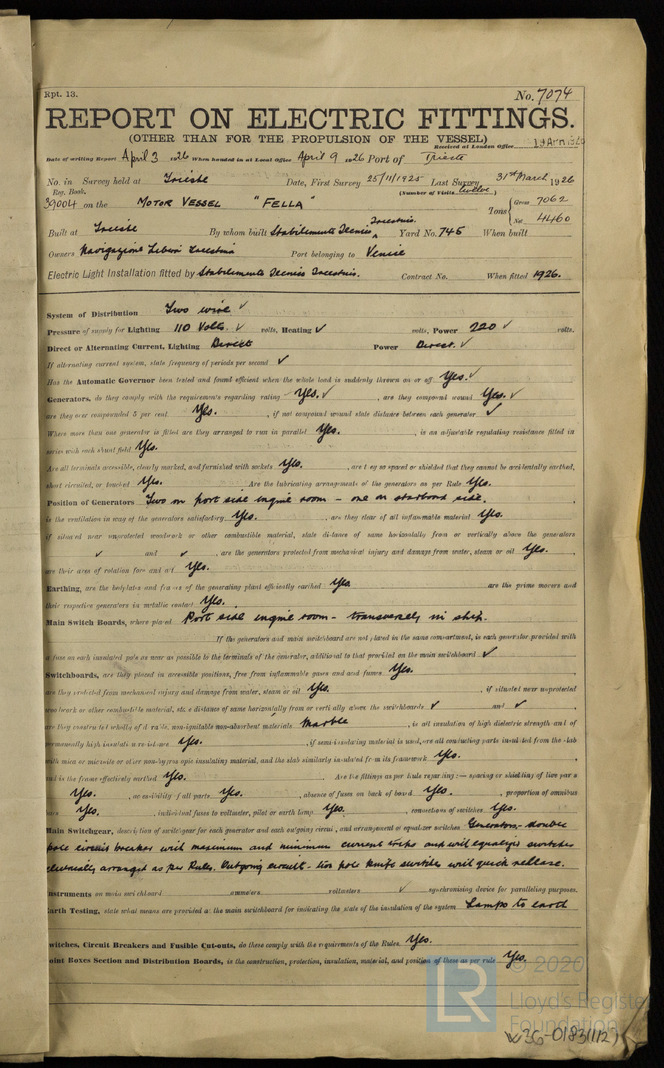 Rpt. 13. No. 7074
REPORT ON ELECTRIC FITTINGS.
(OTHER THAN FOR THE PROPULSION OF THE VESSEL)
Received at London Office
Date of writing Report April 3 1926 When handed in at Local Office April 9 1926 Port of Trieste
No. in Survey held at Trieste Date, First Survey 25/11/1925 Last Survey 31st March 1926
Reg. Book. (Number of Visits twelve)
39004 on the MOTOR VESSEL "FELLA" Tons { Gross 7062
Net 4460
Built at Trieste By whom built Stabilimento Tecnico Triestino Yard No. 745 When built
Owners Navigazione Libera Triestina Port belonging to Venice
Electric Light Installation fitted by Stabilimento Tecnico Triestino. Contract No. When fitted 1926.
System of Distribution Two wire ✓
Pressure of supply for Lighting 110 Volts. ✓ volts, Heating ✓ volts, Power 220 ✓ volts.
Direct or Alternating Current, Lighting Direct Power Direct. ✓
If alternating current system, state frequency of periods per second ✓
Has the Automatic Governor been tested and found efficient when the whole load is suddenly thrown on or off Yes. ✓
Generators, do they comply with the requirements regarding rating Yes. ✓, are they compound wound Yes. ✓
are they over compounded 5 per cent Yes., if not compound wound state distance between each generator ✓
Where more than one generator is fitted are they arranged to run in parallel Yes., is an adjustable regulating resistance fitted in
series with each shunt field Yes.
Are all terminals accessible, clearly marked, and furnished with sockets Yes., are they so spaced or shielded that they cannot be accidentally earthed,
short circuited, or touched Yes. Are the lubricating arrangements of the generators as per Rule Yes.
Position of Generators Two on port side engine room - one on starboard side.
is the ventilation in way of the generators satisfactory Yes. are they clear of all inflammable material Yes.
if situated near unprotected woodwork or other combustible material, state distance of same horizontally from or vertically above the generators
✓ and ✓, are the generators protected from mechanical injury and damage from water, steam or oil Yes.
are their axes of rotation fore and aft Yes.
Earthing, are the bedplates and frames of the generating plant efficiently earthed Yes are the prime movers and
their respective generators in metallic contact Yes.
Main Switch Boards, where placed Port side engine room - transversely in ship.
If the generators and main switchboard are not placed in the same compartment, is each generator provided with
a fuse on each insulated pole as near as possible to the terminals of the generator, additional to that provided on the main switchboard ✓
Switchboards, are they placed in accessible positions, free from inflammable gases and acid fumes Yes.
are they protected from mechanical injury and damage from water, steam or oil Yes., if situated near unprotected
woodwork or other combustible material, state distance of same horizontally from or vertically above the switchboards ✓ and ✓,
are they constructed wholly of durable, non-ignitable non-absorbent materials Marble, is all insulation of high dielectric strength and of
permanently high insulation resistance Yes., if semi-insulating material is used, are all conducting parts insulated from the slab
with mica or micanite or other non-hygroscopic insulating material, and the slab similarly insulated from its framework Yes.
and is the frame effectively earthed Yes. Are the fittings as per Rule regarding :— spacing or shielding of live parts
Yes., accessibility of all parts Yes., absence of fuses on back of board Yes., proportion of omnibus
bars Yes., individual fuses to voltmeter, pilot or earth lamp Yes., connections of switches Yes.
Main Switchgear, description of switchgear for each generator and each outgoing circuit, and arrangement of equalizer switches Generators - double
pole circuit breaker with maximum and minimum current trips and with equalizer switches
electrically arranged as per Rules. Outgoing circuit - two pole knife switches with quick release.
Instruments on main switchboard ammeters voltmeters ✓ synchronising device for paralleling purposes.
Earth Testing, state what means are provided at the main switchboard for indicating the state of the insulation of the system Lamps to earth
Switches, Circuit Breakers and Fusible Cut-outs, do these comply with the requirements of the Rules Yes.
Joint Boxes Section and Distribution Boards, is the construction, protection, insulation, material, and position of these as per rule Yes.
LR © 2020
Lloyd's Register
Foundation
W36-0183(1/2)